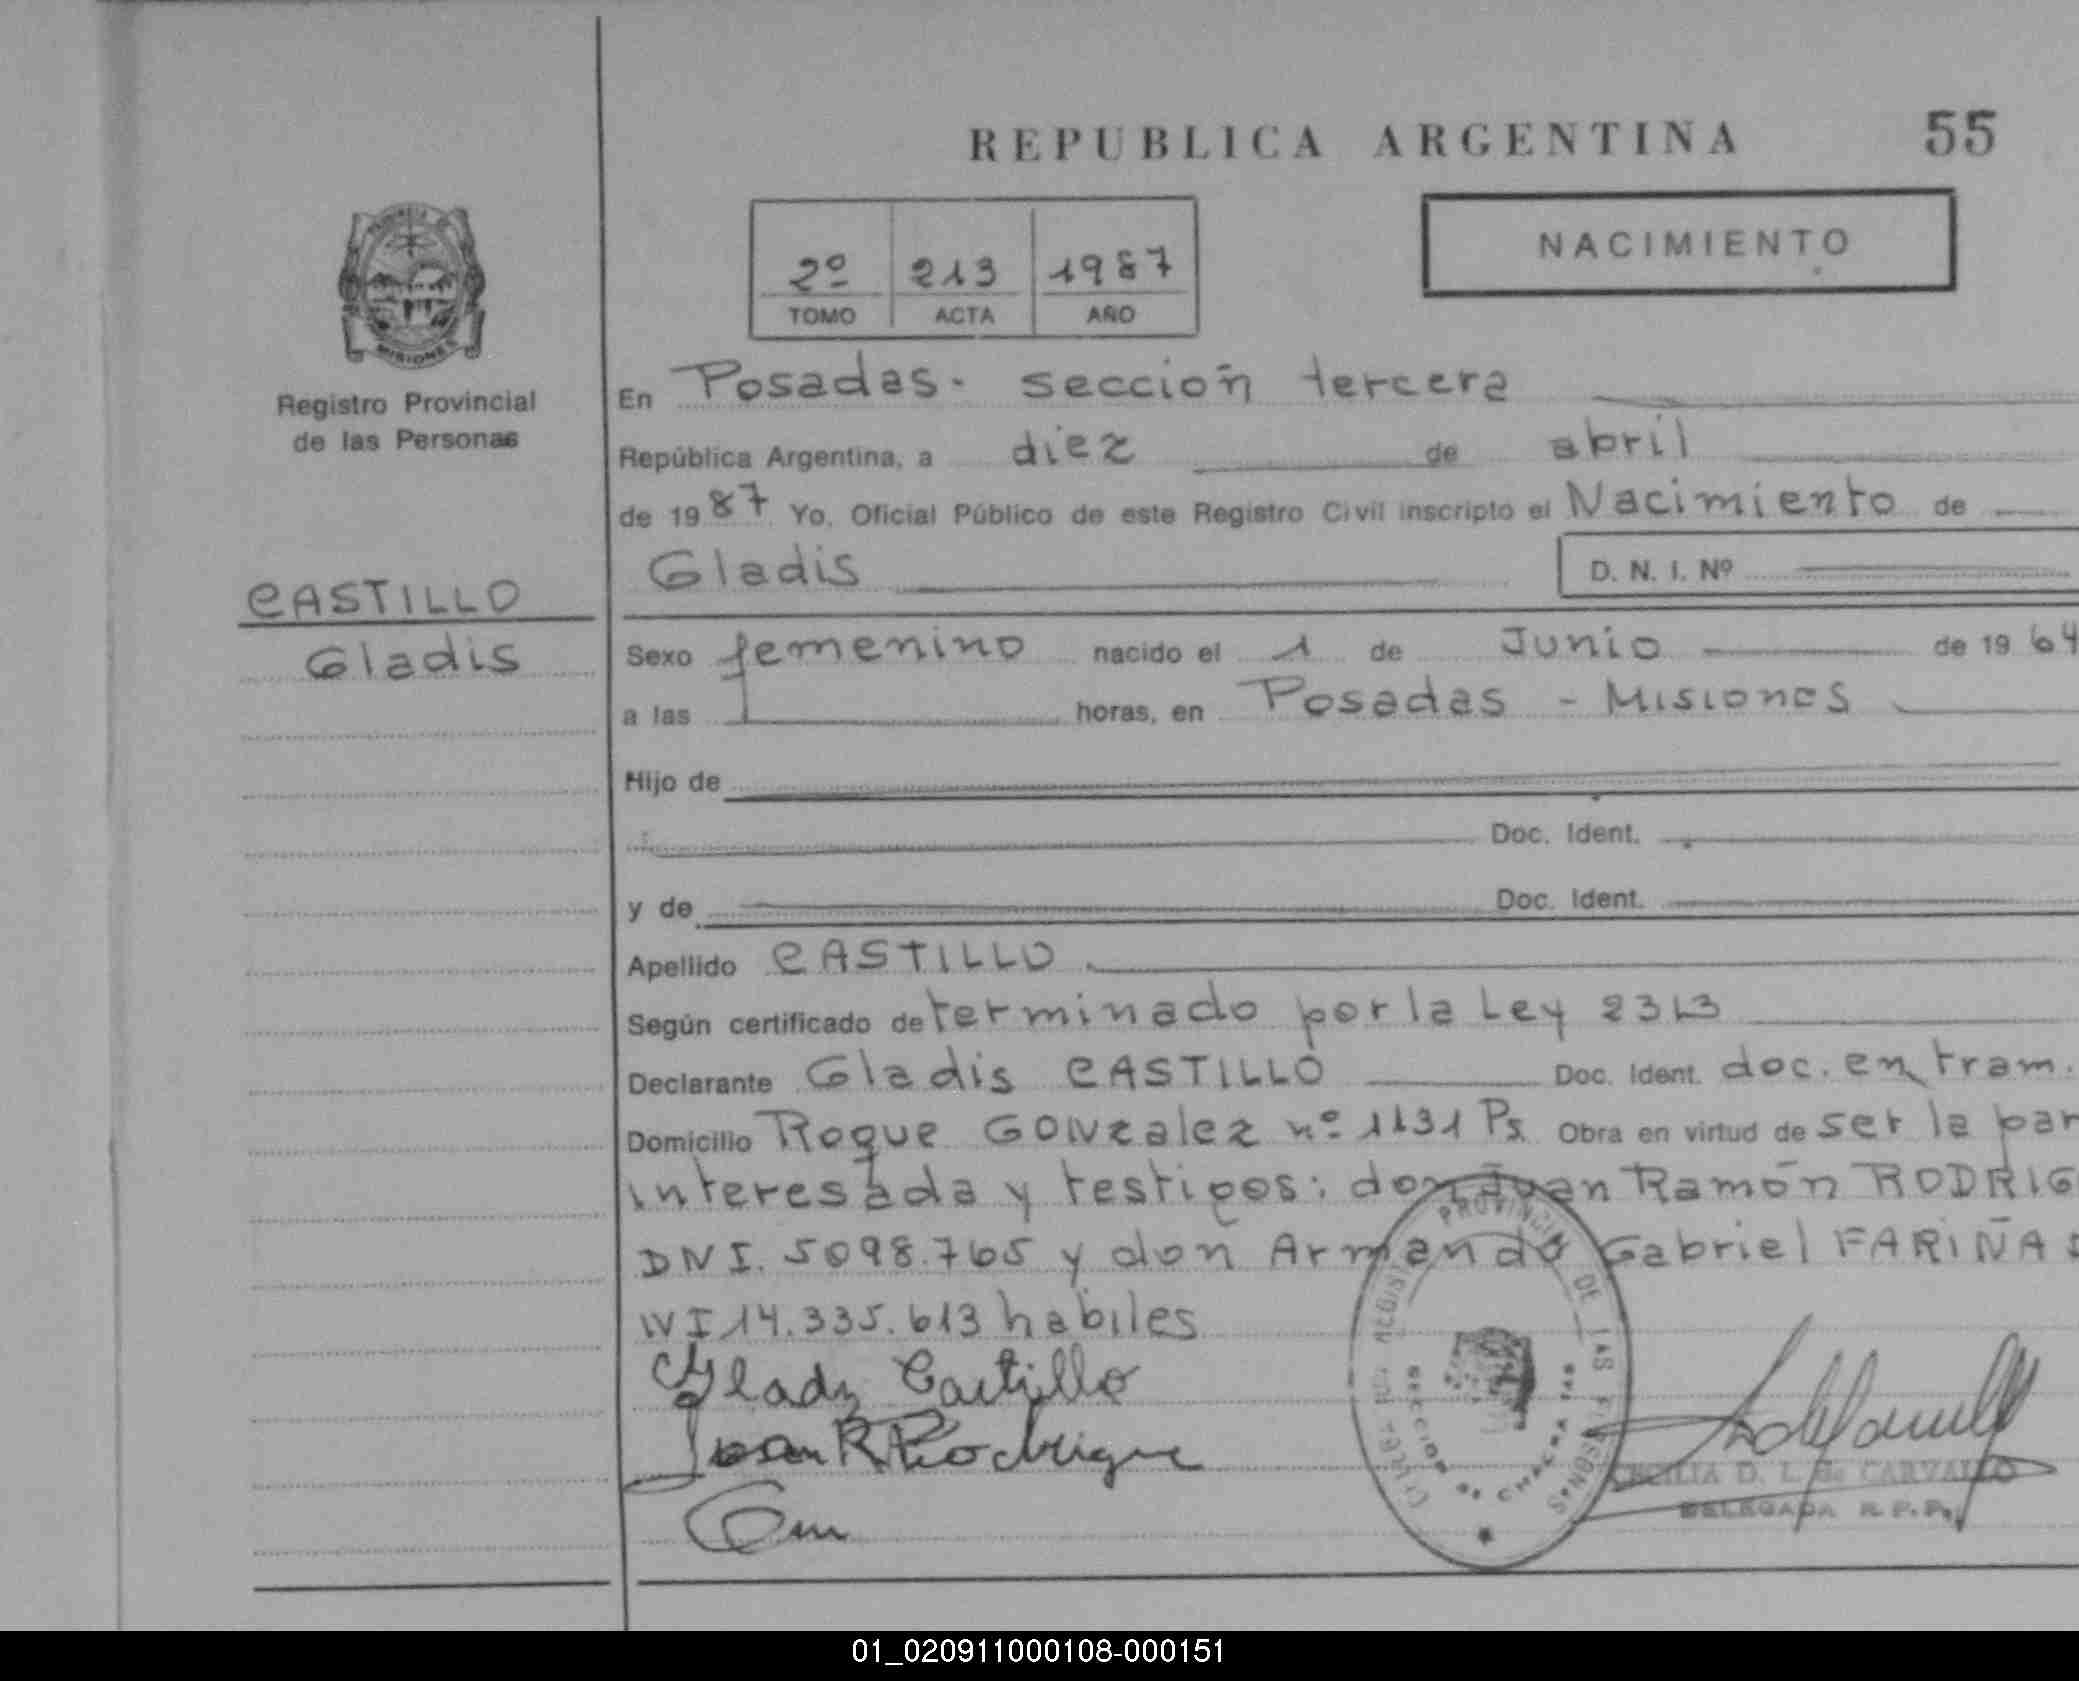 REPUBLICA ARGENTINA 55
NACIMIENTO
2º 213 1987
TOMO ACTA AÑO
MISIONES
Registro Provincial
de las Personas
CASTILLO
Gladis
En Posadas - sección tercera
República Argentina, a diez de abril
de 1987 Yo, Oficial Público de este Registro Civil inscripto el Nacimiento de
Gladis D. N. I. Nº
Sexo femenino nacido el 1 de Junio de 1964
a las horas, en Posadas - Misiones
Hijo de
Doc. Ident.
y de Doc. Ident.
Apellido CASTILLO
Según certificado determinado por la Ley 2313
Declarante Gladis CASTILLO Doc. Ident. doc. en tram.
Domicilio Roque GONzalez nº 1131 Ps. Obra en virtud de ser la par
interesada y testigos: don Juan Ramón RODRIG
DNI. 5098.765 y don Armando Gabriel FARIÑAS
NI 14.335.613 habiles
Glady Castillo
Juan R Rodrigue
PROVINCIAL DE LAS PERSONAS
SECCION CHACRA
CECILIA D. L. de CARVALLO
DELEGADA R. P. P.
01_020911000108-000151